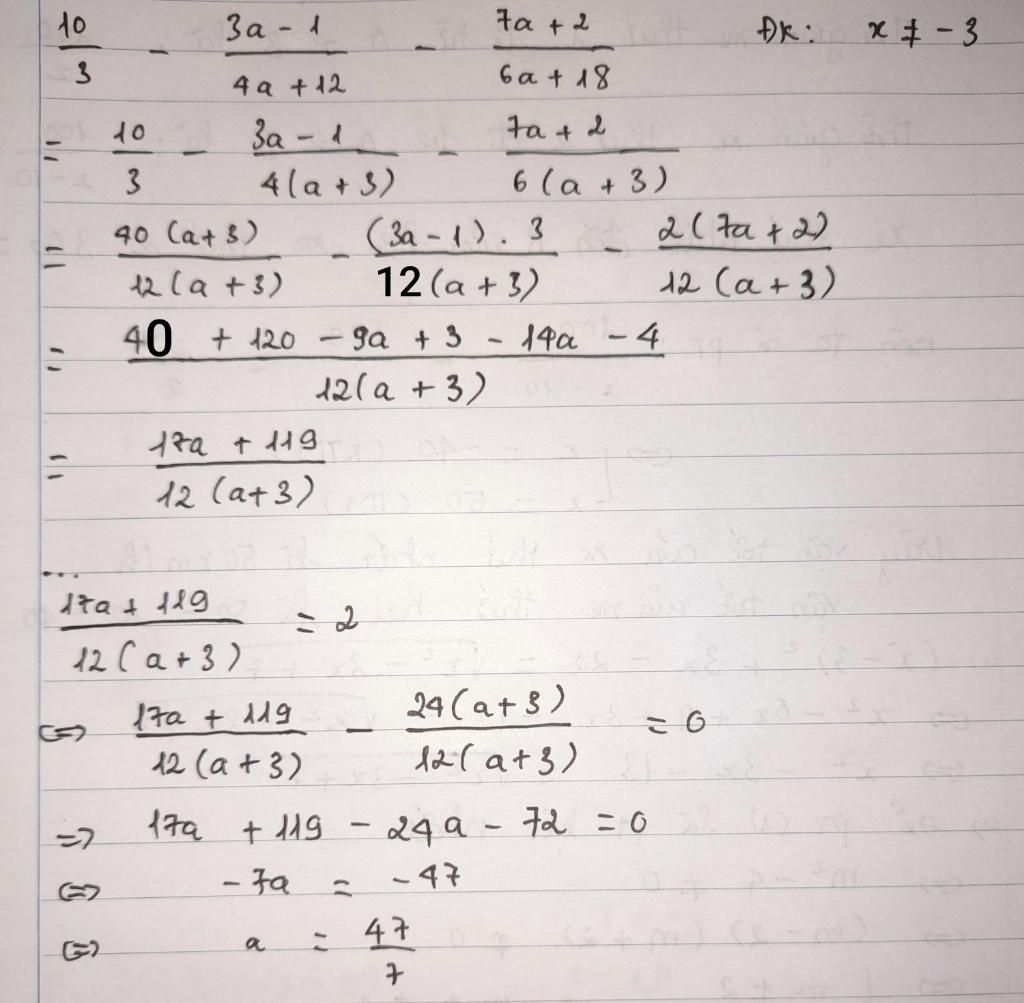 10/3 - (3a - 1)/(4a + 12) - (7a + 2)/(6a + 18) ĐK: x ≠ -3
= 10/3 - (3a - 1)/(4(a + 3)) - (7a + 2)/(6(a + 3))
= (40(a+3))/(12(a + 3)) - ((3a - 1) . 3)/(12(a + 3)) - (2(7a + 2))/(12(a + 3))
= (40 + 120 - 9a + 3 - 14a - 4)/(12(a + 3))
= (17a + 119)/(12(a+3))
...
(17a + 119)/(12(a+3)) = 2
⇔ (17a + 119)/(12(a+3)) - (24(a+3))/(12(a+3)) = 0
=> 17a + 119 - 24a - 72 = 0
⇔ -7a = -47
⇔ a = 47/7